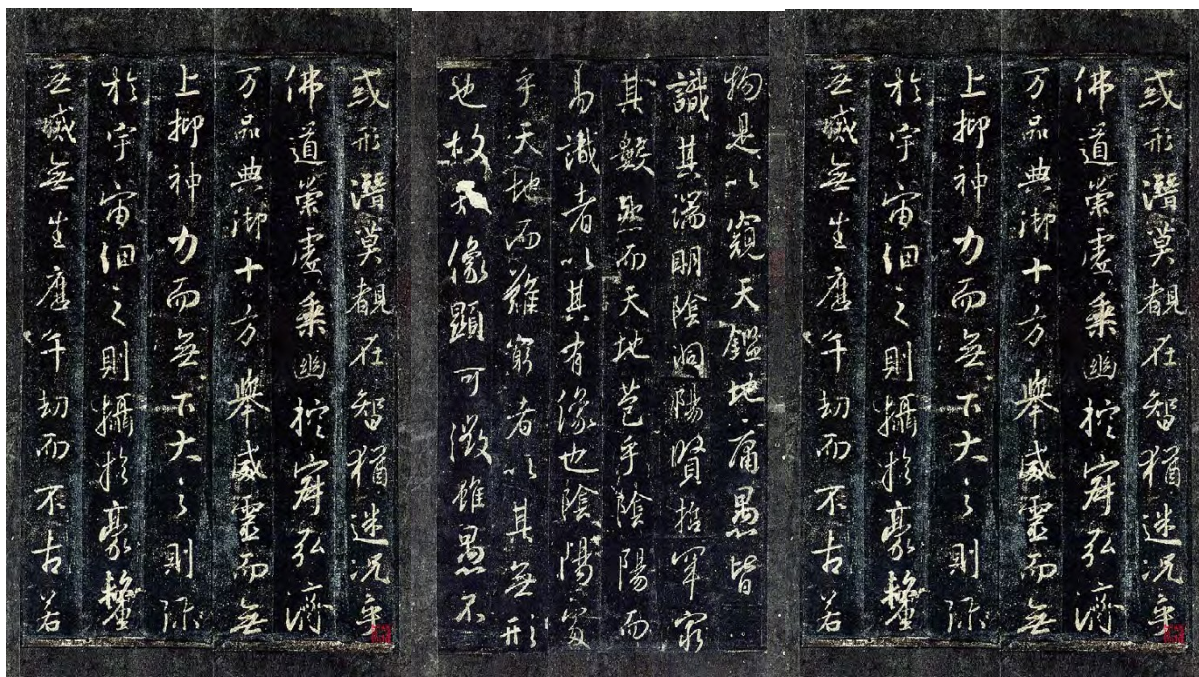 或形潛莫覩在智猶迷況乎
佛道崇虛乘幽控寂弘濟
万品典御十方舉威靈而無
上抑神力而無下大之則彌
於宇宙細之則攝於豪釐
無滅無生歷千劫而不古若
物是以窺天鑑地庸愚皆
識其端明陰洞陽賢哲罕窮
其數然而天地苞乎陰陽而
易識者以其有像也陰陽處
乎天地而難窮者以其無形
也故知像顯可徵雖愚不
或形潛莫覩在智猶迷況乎
佛道崇虛乘幽控寂弘濟
万品典御十方舉威靈而無
上抑神力而無下大之則彌
於宇宙細之則攝於豪釐
無滅無生歷千劫而不古若